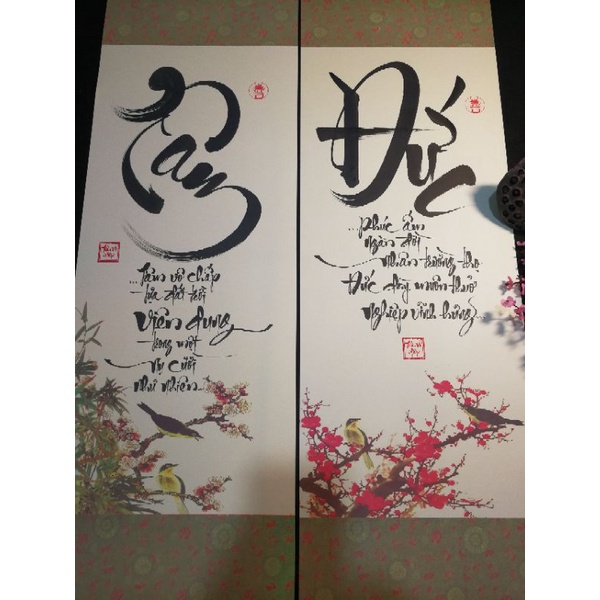 Tâm
...Tâm vô chấp
tựa đất trời
Viên dung
trong một
nụ cười
như nhiên...
Đức
...Phúc ấm
ngàn đời
nhân trường thọ
Đức dày muôn thuở
nghiệp vĩnh hưng...